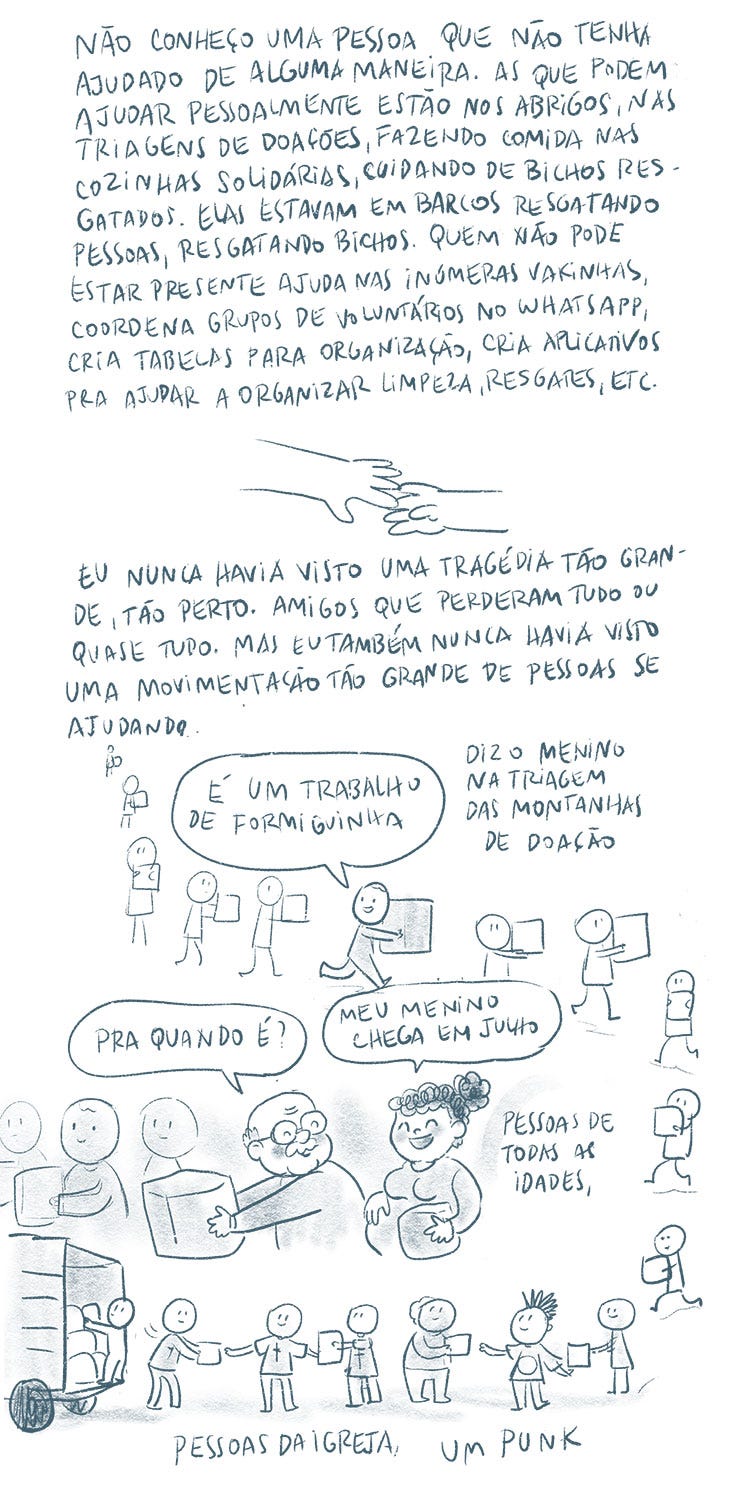 NÃO CONHEÇO UMA PESSOA QUE NÃO TENHA
AJUDADO DE ALGUMA MANEIRA. AS QUE PODEM
AJUDAR PESSOALMENTE ESTÃO NOS ABRIGOS, NAS
TRIAGENS DE DOAÇÕES, FAZENDO COMIDA NAS
COZINHAS SOLIDÁRIAS, CUIDANDO DE BICHOS RES-
GATADOS. ELAS ESTAVAM EM BARCOS RESGATANDO
PESSOAS, RESGATANDO BICHOS. QUEM NÃO PODE
ESTAR PRESENTE AJUDA NAS INÚMERAS VAKINHAS,
COORDENA GRUPOS DE VOLUNTÁRIOS NO WHATSAPP,
CRIA TABELAS PARA ORGANIZAÇÃO, CRIA APLICATIVOS
PRA AJUDAR A ORGANIZAR LIMPEZA, RESGATES, ETC.
EU NUNCA HAVIA VISTO UMA TRAGÉDIA TÃO GRAN-
DE, TÃO PERTO. AMIGOS QUE PERDERAM TUDO OU
QUASE TUDO. MAS EU TAMBÉM NUNCA HAVIA VISTO
UMA MOVIMENTAÇÃO TÃO GRANDE DE PESSOAS SE
AJUDANDO.
É UM TRABALHO
DE FORMIGUINHA
DIZ O MENINO
NA TRIAGEM
DAS MONTANHAS
DE DOAÇÃO
PRA QUANDO É?
MEU MENINO
CHEGA EM JULHO
PESSOAS DE
TODAS AS
IDADES,
PESSOAS DA IGREJA,
UM PUNK